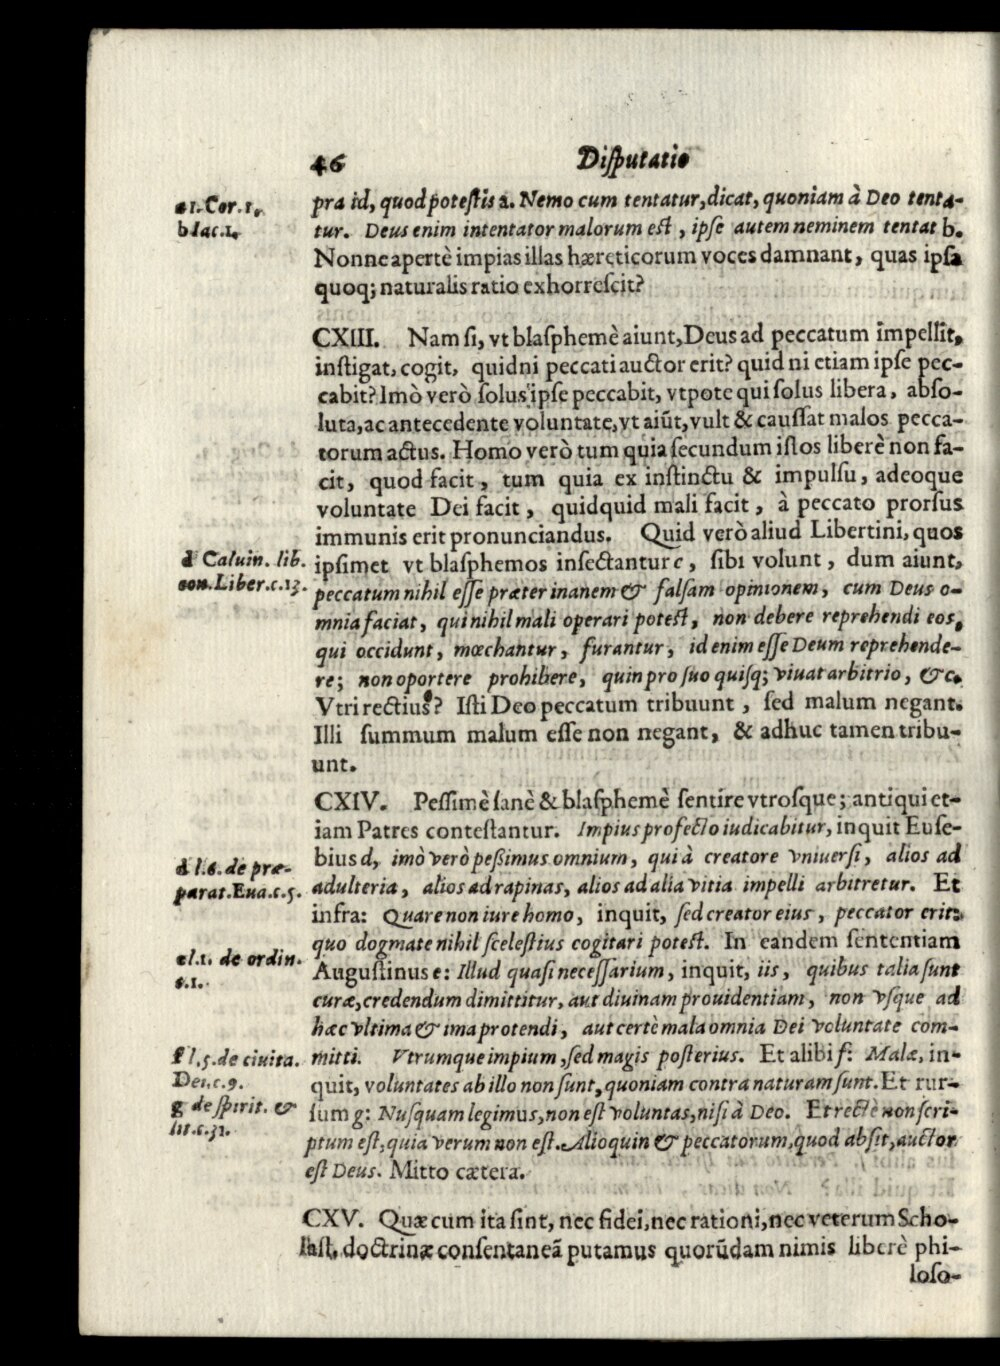 46 Disputatio
a 1. Cor. 1.
b Iac. 1.
pra id, quod potestis a. Nemo cum tentatur, dicat, quoniam à Deo tenta-
tur. Deus enim intentator malorum est, ipse autem neminem tentat b.
Nonne apertè impias illas hæreticorum voces damnant, quas ipsa
quoq; naturalis ratio exhorrescit?
CXIII. Nam si, vt blasphemè aiunt, Deus ad peccatum impellit,
instigat, cogit, quidni peccati auctor erit? quid ni etiam ipse pec-
cabit? Imò verò solus ipse peccabit, vtpote qui solus libera, abso-
luta, ac antecedente voluntate, vt aiūt, vult & caussat malos pecca-
torum actus. Homo verò tum quia secundum istos liberè non fa-
cit, quod facit, tum quia ex instinctu & impulsu, adeoque
voluntate Dei facit, quidquid mali facit, à peccato prorsus
immunis erit pronunciandus. Quid verò aliud Libertini, quos
d Caluin. lib.
con. Liber. c. 13.
ipsimet vt blasphemos insectantur c, sibi volunt, dum aiunt,
peccatum nihil esse præter inanem & falsam opinionem, cum Deus o-
mnia faciat, qui nihil mali operari potest, non debere reprehendi eos,
qui occidunt, mœchantur, furantur, id enim esse Deum reprehende-
re; non oportere prohibere, quin pro suo quisq; viuat arbitrio, &c.
Vtri rectius? Isti Deo peccatum tribuunt, sed malum negant.
Illi summum malum esse non negant, & adhuc tamen tribu-
unt.
CXIV. Pessimè sanè & blasphemè sentire vtrosque; antiqui et-
iam Patres contestantur. Impius profecto iudicabitur, inquit Euse-
bius d, imò verò pessimus omnium, qui à creatore vniuersi, alios ad
d l. 6. de præ-
parat. Eua. c. 5.
adulteria, alios ad rapinas, alios ad alia vitia impelli arbitretur. Et
infra: Quare non iure homo, inquit, sed creator eius, peccator erit:
quo dogmate nihil scelestius cogitari potest. In eandem sententiam
e l. 1. de ordin.
c. 1.
Augustinus e: Illud quasi necessarium, inquit, iis, quibus talia sunt
curæ, credendum dimittitur, aut diuinam prouidentiam, non vsque ad
hæc vltima & ima protendi, aut certè mala omnia Dei voluntate com-
mitti. Vtrumque impium, sed magis posterius. Et alibi f: Malæ, in-
f l. 5. de ciuita.
Dei. c. 9.
quit, voluntates ab illo non sunt, quoniam contra naturam sunt. Et rur-
g de spirit. &
lit. c. 31.
sum g: Nusquam legimus, non est voluntas, nisi à Deo. Et rectè non scri-
ptum est, quia verum non est. Alioquin & peccatorum, quod absit, auctor
est Deus. Mitto cætera.
CXV. Quæ cum ita sint, nec fidei, nec rationi, nec veterum Scho-
last. doctrinæ consentaneā putamus quorūdam nimis liberè phi-
loso-